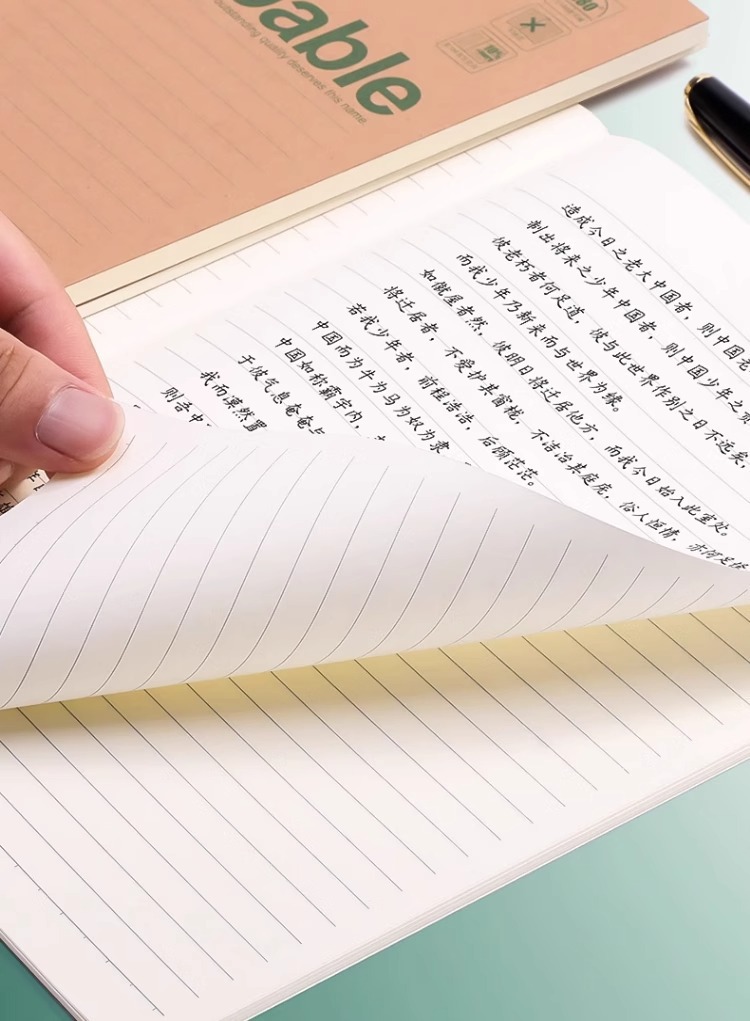 able
outstanding quality deserves this name.
造成今日之老大中国者，则中国老
制出将来之少年中国者，则中国少年之责
彼老朽者何足道，彼与此世界作别之日不远矣
而我少年乃新来而与世界为缘。
如僦屋者然，彼明日将迁居他方，而我今日始入此室处。
将迁居者，不爱护其窗栊，不洁治其庭庑，俗人恒情，亦何足怪
若我少年者，前程浩浩，后顾茫茫。
中国而为牛为马为奴为隶
中国如称霸宇内，
于彼气息奄奄与
我而漠然置
则吾中